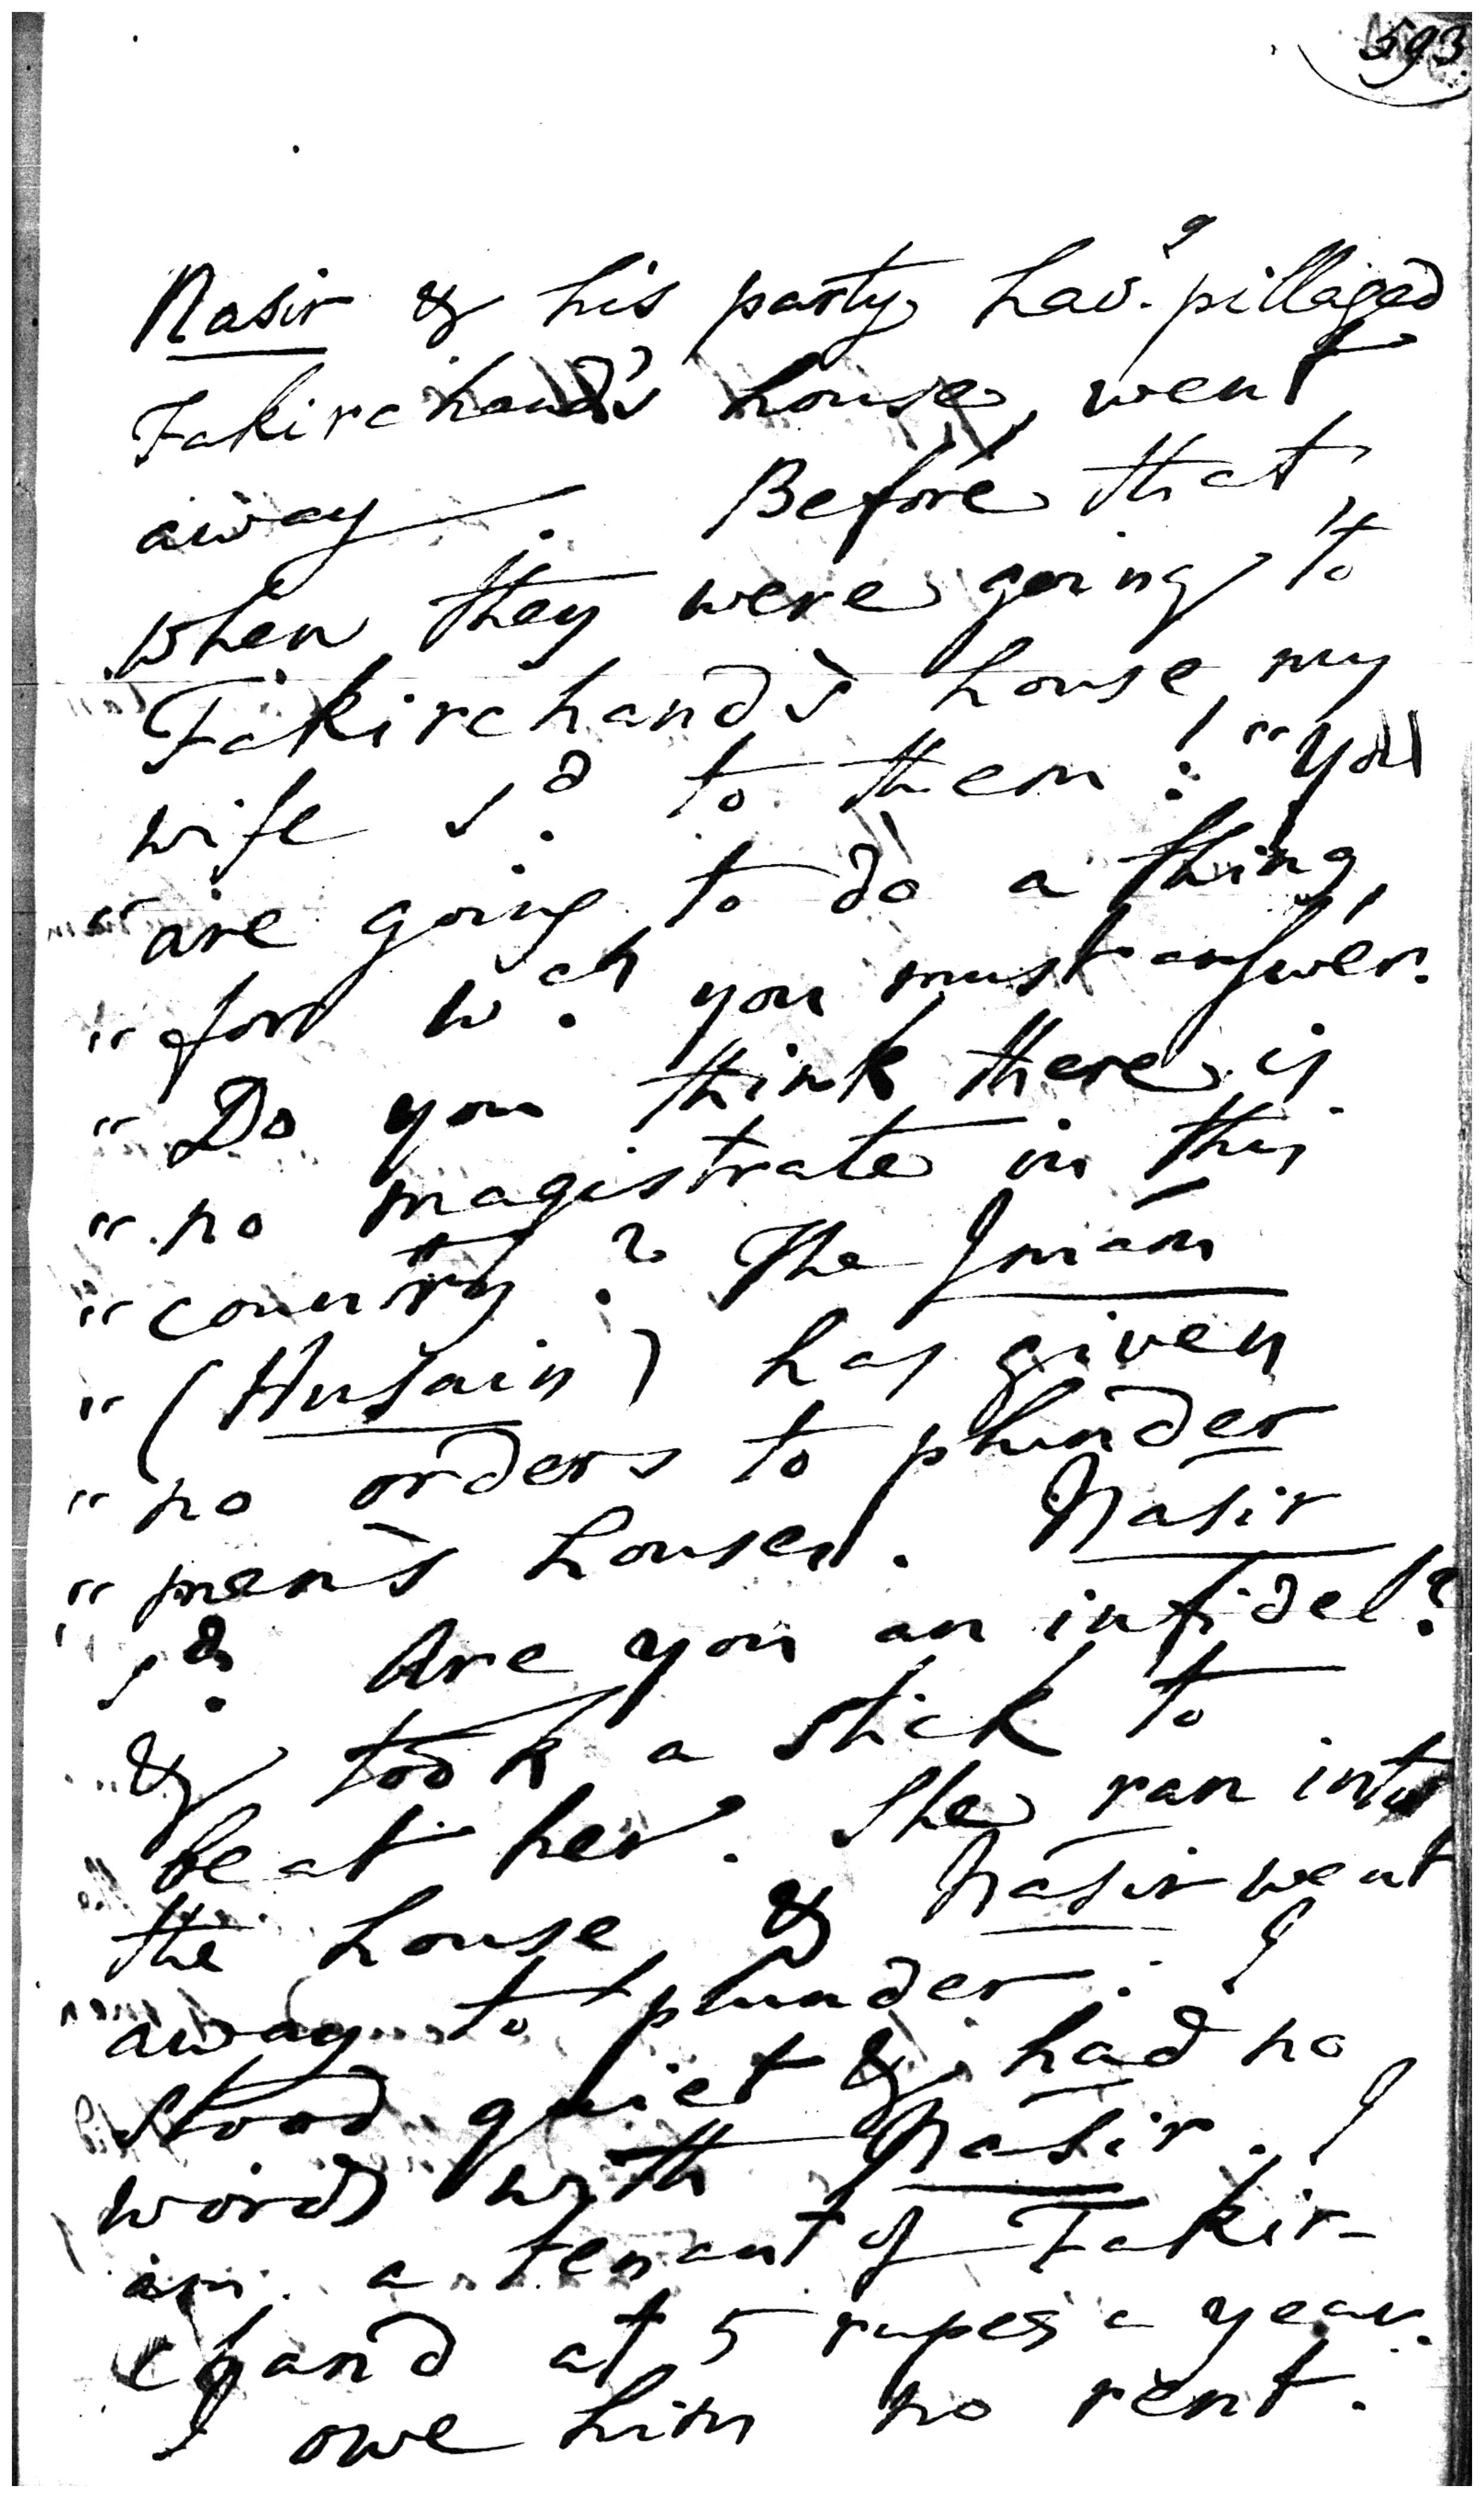 593
Nasir & his party hav.g pillaged
Fakirchand's house, went
away. Before that,
when they were going to
Fakirchand's house, my
wife s.d to them: "You
"are going to do a thing,
"for w.ch you must answer.
"Do you think there is
"no magistrate in this
"country? The Imám
"(Husain) has given
"no orders to plunder
"men's houses. Nasir
s.d Are you an infidel?
& took a stick to
beat her. She ran into
the house & Nasir went
away to plunder: I
stood quiet & had no
words with Nasir. I
am a tenant of Fakir-
chand at 5 rupes a year.
I owe him no rent.